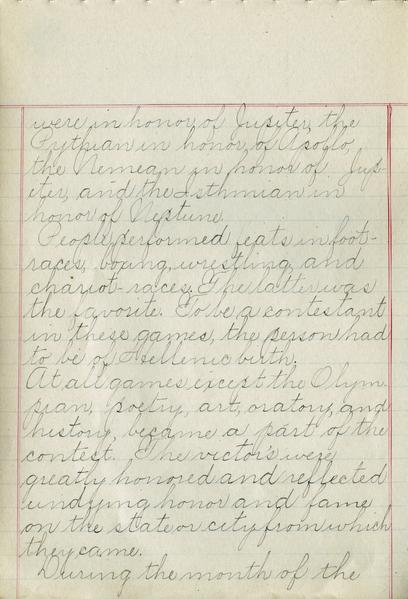 were in honor of Jupiter, the
Pythian in honor of Apollo,
the Nemean in honor of Jup-
iter, and the Isthmian in
honor of Neptune.
People performed feats in foot-
races, boxing, wrestling, and
chariot-races. The latter was
the favorite. To be a contestant
in these games, the person had
to be of Hellenic birth.
At all games except the Olym-
pian, poetry, art, oratory, and
history, became a part of the
contest. The victors were
greatly honored and reflected
undying honor and fame
on the state or city from which
they came.
During the month of the